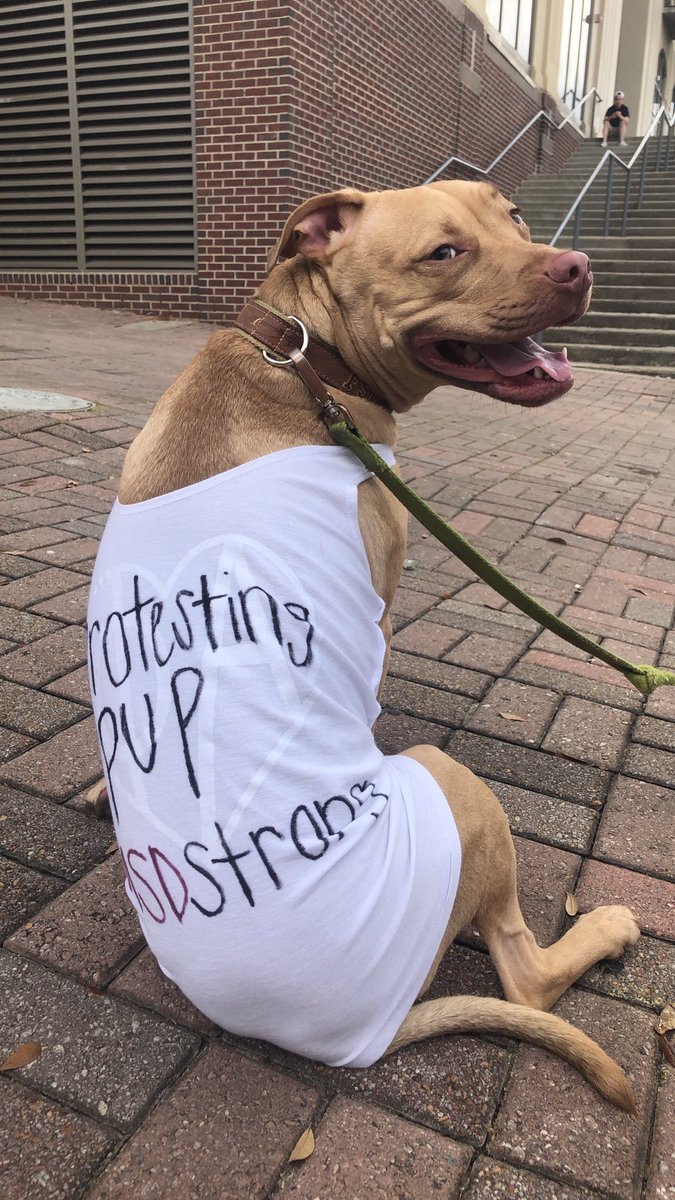 protesting
pup
MSDstrong